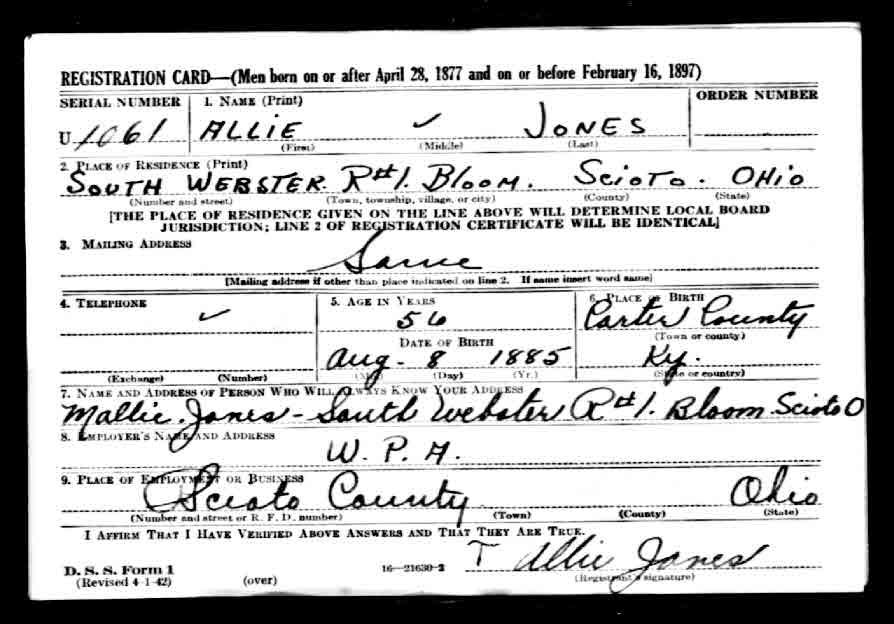 REGISTRATION CARD—(Men born on or after April 28, 1877 and on or before February 16, 1897)
SERIAL NUMBER 1. NAME (Print) ORDER NUMBER
U 1061 ALLIE ✓ JONES
(First) (Middle) (Last)
2. PLACE OF RESIDENCE (Print)
SOUTH WEBSTER. R#1. BLOOM. SCIOTO. OHIO
(Number and street) (Town, township, village, or city) (County) (State)
[THE PLACE OF RESIDENCE GIVEN ON THE LINE ABOVE WILL DETERMINE LOCAL BOARD
JURISDICTION; LINE 2 OF REGISTRATION CERTIFICATE WILL BE IDENTICAL]
3. MAILING ADDRESS
Same
[Mailing address if other than place indicated on line 2. If same insert word same]
4. TELEPHONE 5. AGE IN YEARS 6. PLACE OF BIRTH
✓ 56 Carter County
(Town or county)
DATE OF BIRTH
Aug. 8 1885 Ky.
(Exchange) (Number) (Mo.) (Day) (Yr.) (State or country)
7. NAME AND ADDRESS OF PERSON WHO WILL ALWAYS KNOW YOUR ADDRESS
Mallie Jones - South Webster R#1. Bloom. Scioto O
8. EMPLOYER'S NAME AND ADDRESS
W. P. A.
9. PLACE OF EMPLOYMENT OR BUSINESS
Scioto County Ohio
(Number and street or R. F. D. number) (Town) (County) (State)
I AFFIRM THAT I HAVE VERIFIED ABOVE ANSWERS AND THAT THEY ARE TRUE.
Allie Jones
D. S. S. Form 1 16—21630-2 (Registrant's signature)
(Revised 4-1-42) (over)